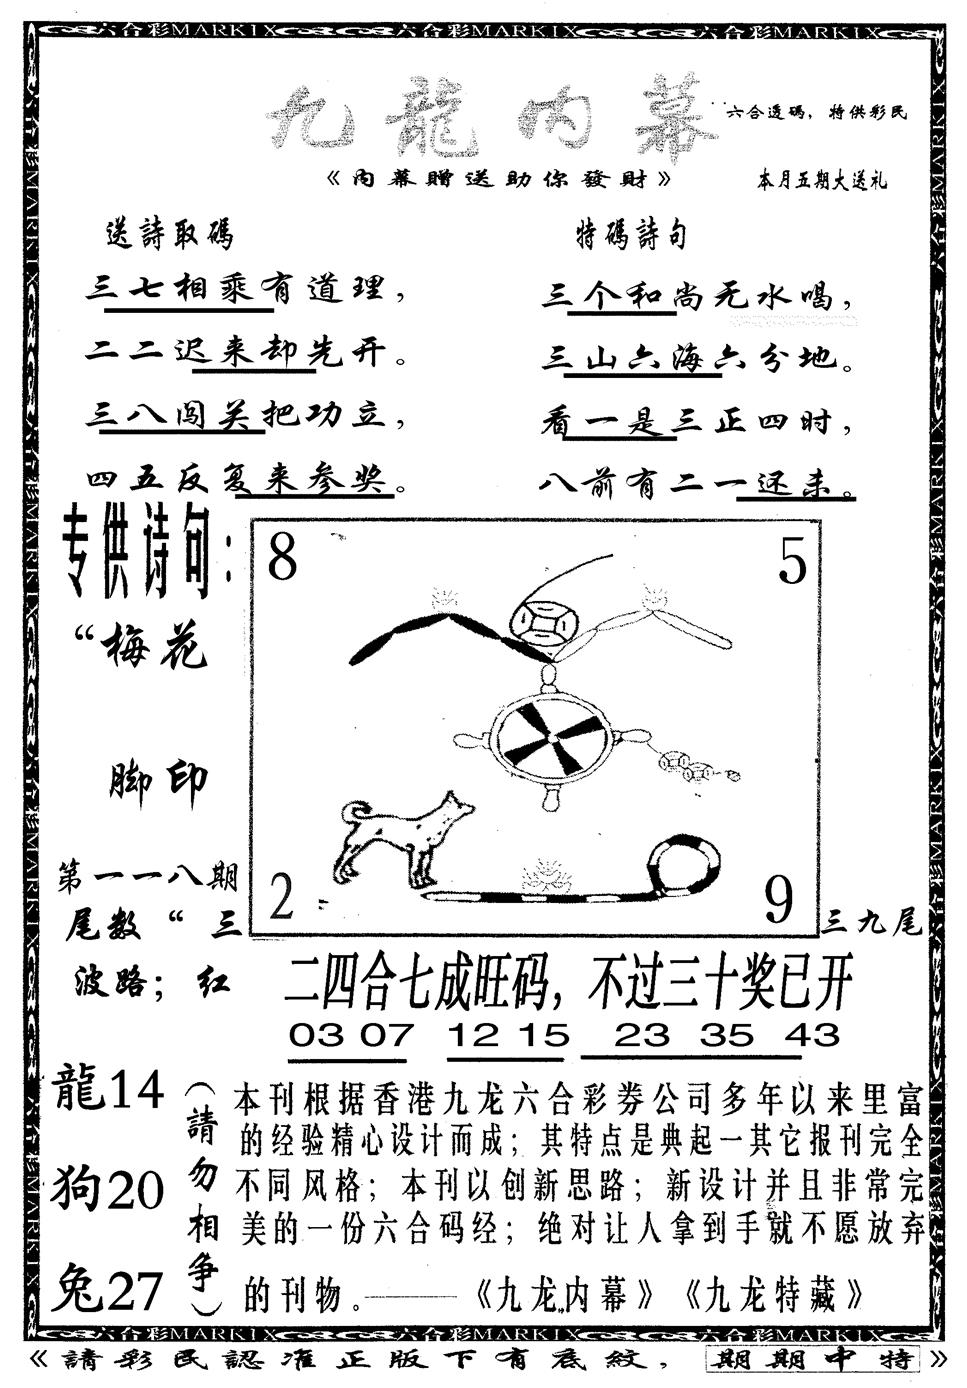 六合彩MARKIX 六合彩MARKIX 六合彩MARKIX
九龍内幕
六合透碼，特供彩民
《内幕贈送助你發財》
本月五期大送礼
送詩取碼
三七相乘有道理，
二二迟来却先开。
三八闯关把功立，
四五反复来参奖。
特碼詩句
三个和尚无水喝，
三山六海六分地。
看一是三正四时，
八前有二一还未。
专供诗句：
“梅花
脚印
第一一八期
尾数“三
三九尾
波路；红
8
5
2
9
二四合七成旺码，不过三十奖已开
03 07 12 15 23 35 43
龍14
狗20
兔27
（請勿相争）
本刊根据香港九龙六合彩券公司多年以来里富
的经验精心设计而成；其特点是典起一其它报刊完全
不同风格；本刊以创新思路；新设计并且非常完
美的一份六合码经；绝对让人拿到手就不愿放弃
的刊物。———《九龙内幕》《九龙特藏》
六合彩MARKIX 六合彩MARKIX 六合彩MARKIX
《請彩民認准正版下有底紋，期期中特》